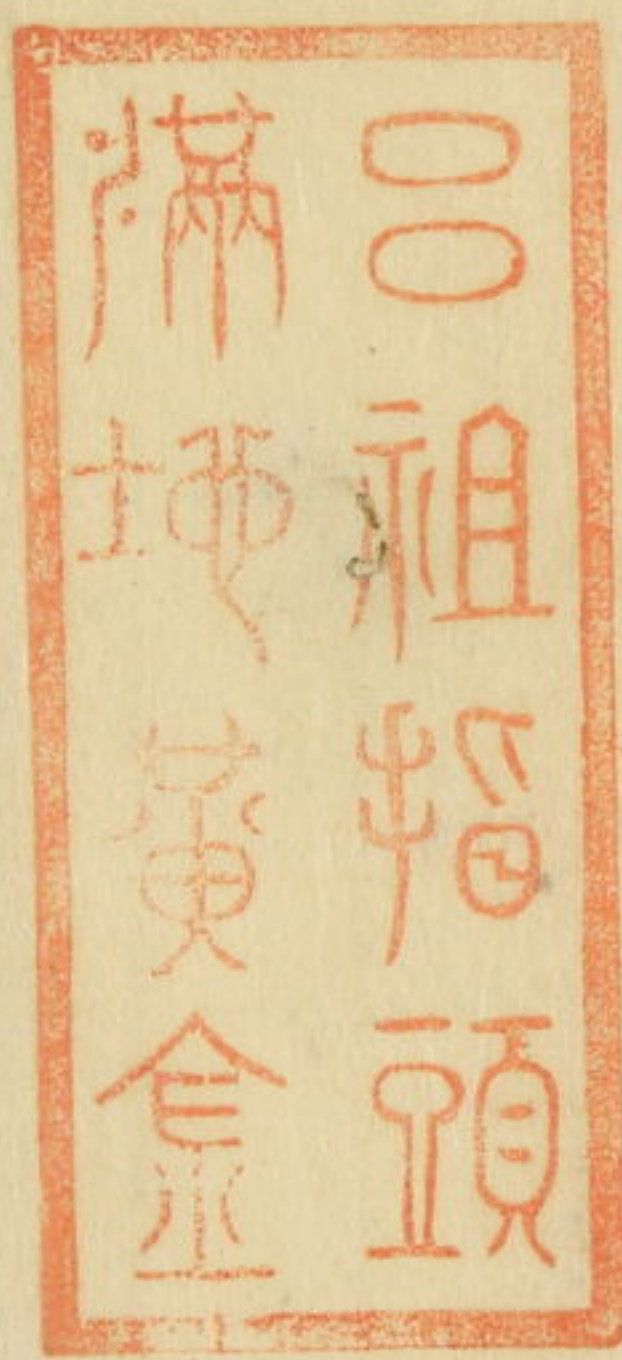 呂祖指頭
滿地黃金